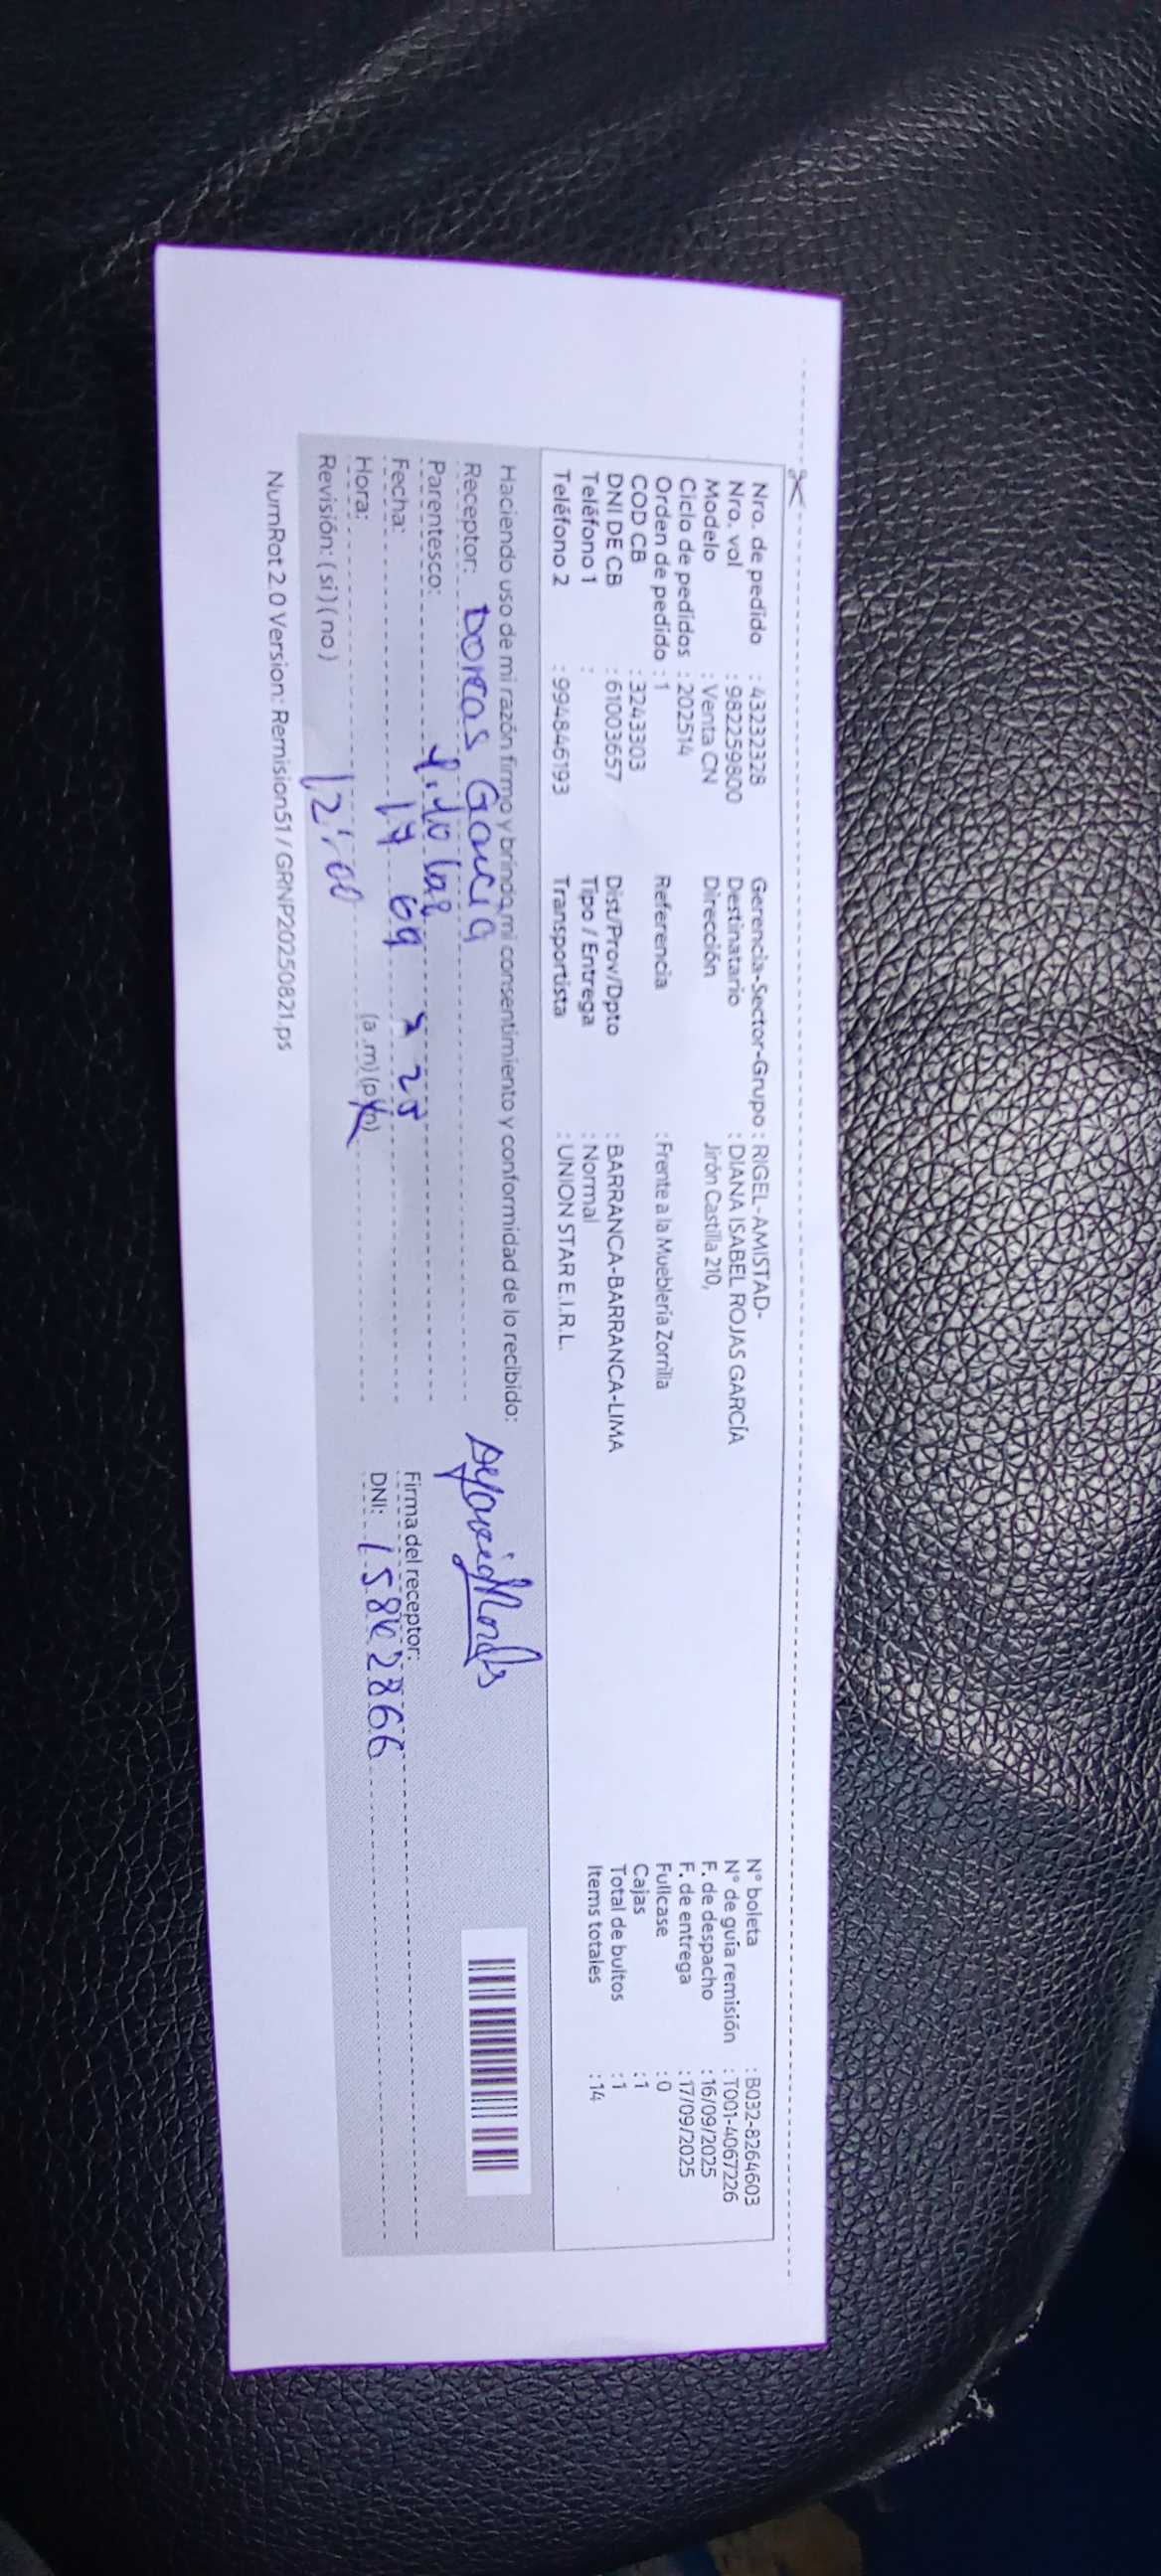 Nro. de pedido : 43232328
Nro. vol : 982259800
Modelo : Venta CN
Ciclo de pedidos : 202514
Orden de pedido : 1
COD CB : 3243303
DNI DE CB : 61003657
Teléfono 1 :
Teléfono 2 : 994846193
Gerencia-Sector-Grupo : RIGEL-AMISTAD-
Destinatario : DIANA ISABEL ROJAS GARCÍA
Dirección Jirón Castilla 210,
Referencia : Frente a la Mueblería Zorrilla
Dist/Prov/Dpto : BARRANCA-BARRANCA-LIMA
Tipo / Entrega : Normal
Transportista : UNION STAR E.I.R.L.
N° boleta : B032-8264603
N° de guía remisión : T001-4067226
F. de despacho : 16/09/2025
F. de entrega : 17/09/2025
Fullcase : 0
Cajas : 1
Total de bultos : 1
Items totales : 14
Haciendo uso de mi razón firmo y brindo mi consentimiento y conformidad de lo recibido:
Receptor: Dorcas Garcia
Parentesco:
Fecha: 17 09 25
Hora: 12:00 (a.m) (p.m)
Revisión: (si) (no)
Firma del receptor:
DNI: 15862866
NumRot 2.0 Version: Remision51 / GRNP20250821.ps